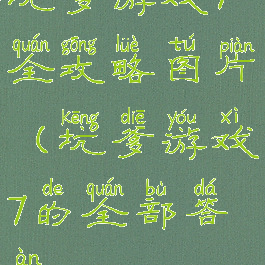 坑爹游戏7
quán gōng lüè tú piàn
全攻略图片
kēng diē yóu xì
(坑爹游戏
de quán bù dá
7的全部答
àn